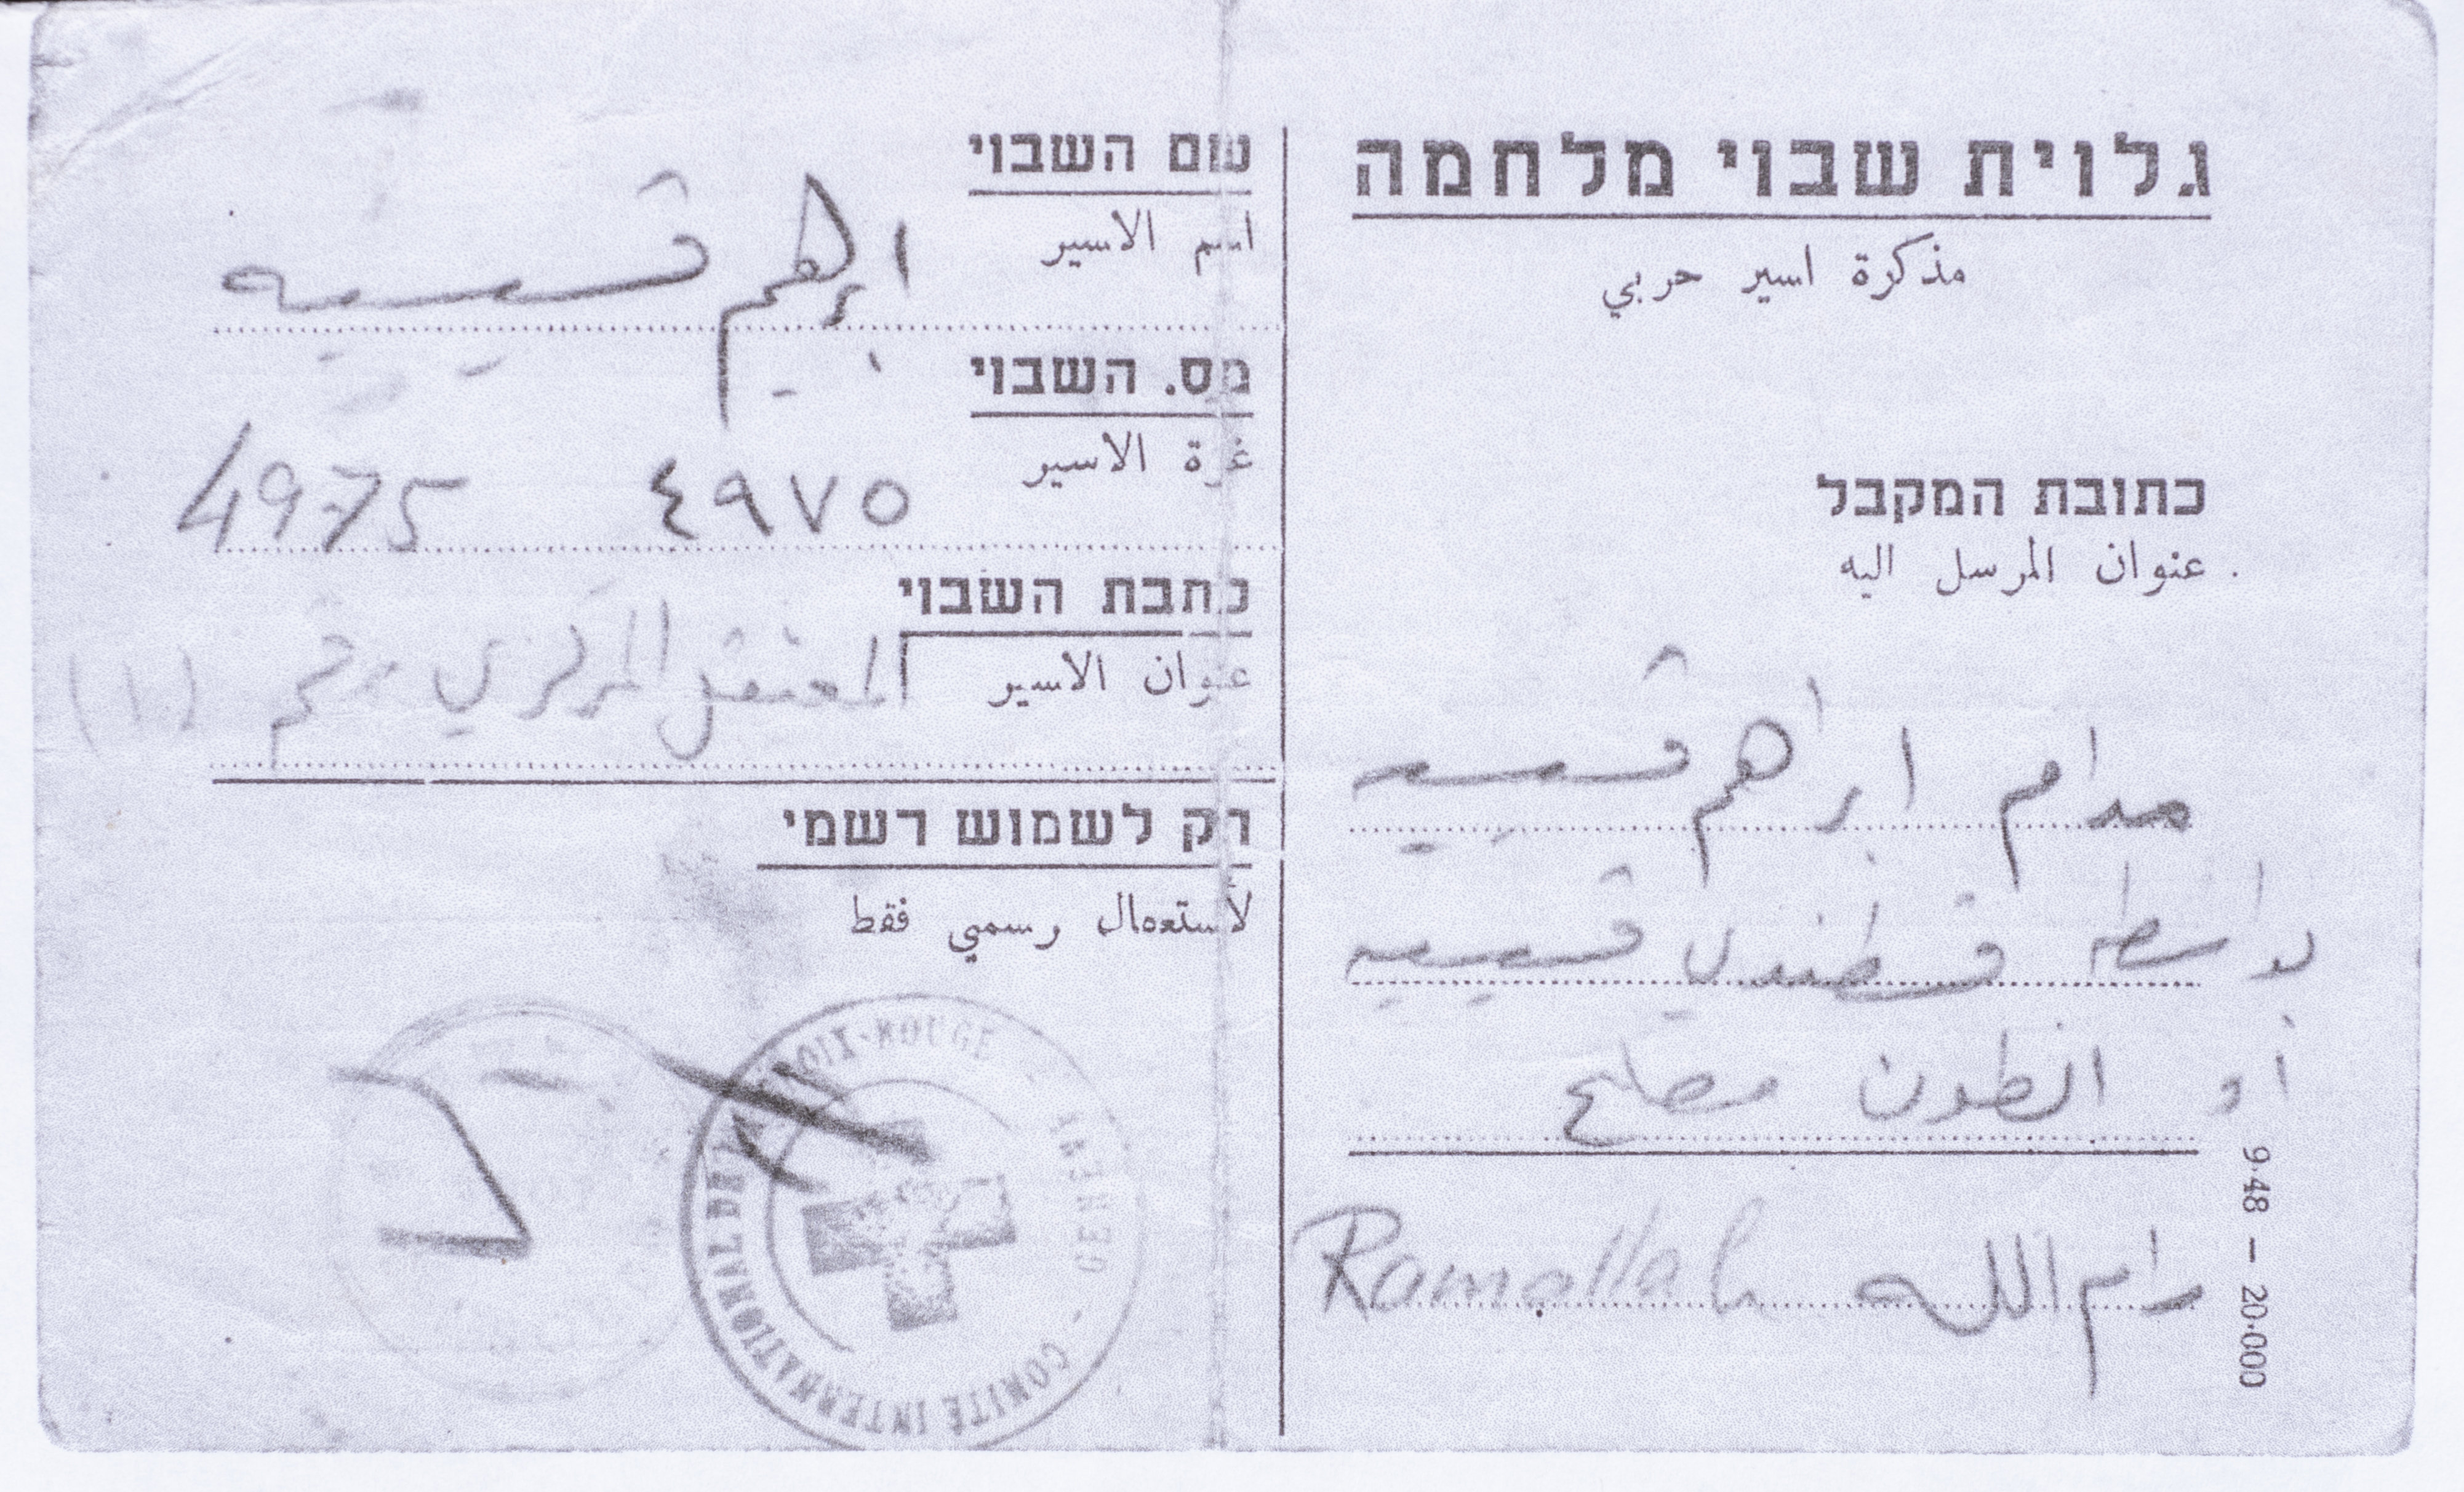 גלוית שבוי מלחמה
مذكرة اسير حربي
כתובת המקבל
عنوان المرسل اليه
مدام ابراهيم قسيسيه
بواسطة قسطندي قسيسيه
أو انطون مصلح
رام الله Ramallah
9.48 — 20.000
שם השבוי
اسم الاسير
ابراهيم قسيسيه
מס. השבוי
نمرة الاسير
٤٩٧٥ 4975
כתבת השבוי
عنوان الاسير
المعتقل المركزي رقم (١)
רק לשמוש רשמי
لأستعمال رسمي فقط
COMITÉ INTERNATIONAL DE LA CROIX-ROUGE - GENÈVE -